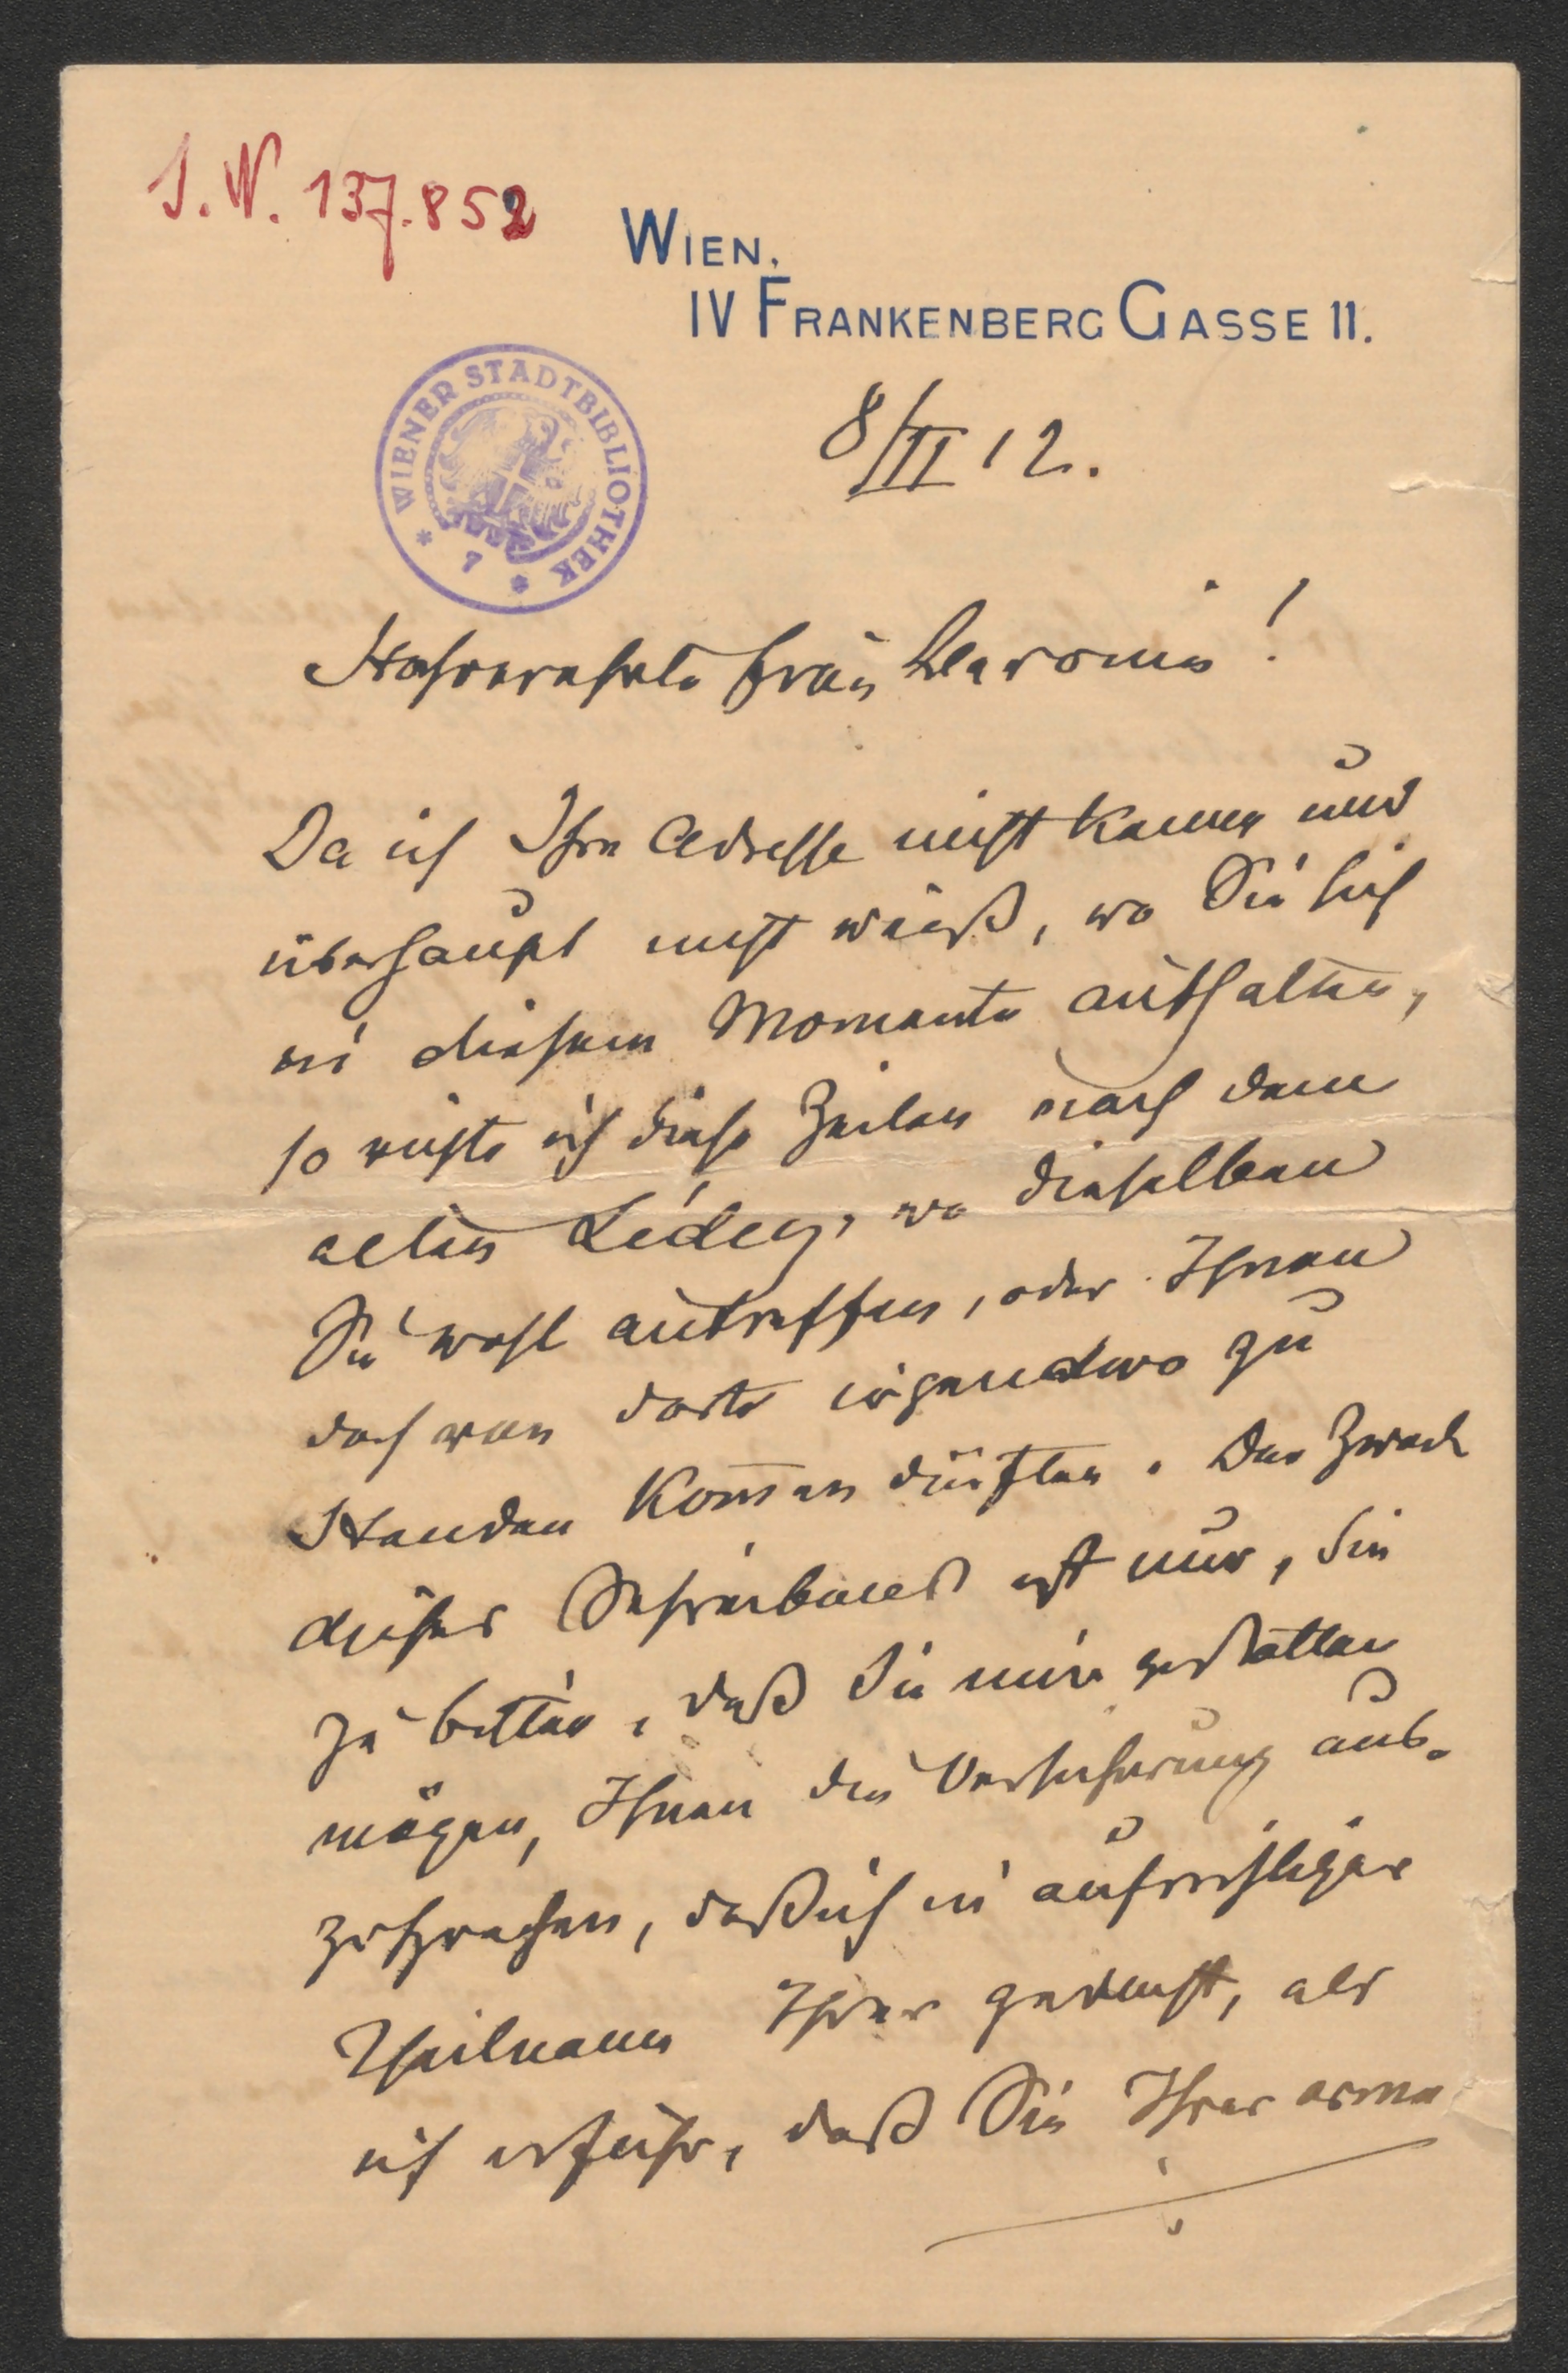 I. N. 137.852
WIEN.
IV FRANKENBERG GASSE 11.
WIENER STADTBIBLIOTHEK
8/II 12.
Hochverehrte Frau Baronin!
Da ich Ihre Adresse nicht kenne und
überhaupt nicht weiß, wo Sie sich
in diesem Momente aufhalten,
so richte ich diese Zeilen nach dem
alten Lédecz, wo dieselben
Sie wohl antreffen, oder Ihnen
doch von dorte irgendwo zu
Handen kom̅en dürften. Der Zweck
dieses Schreibens ist nur, Sie
zu bitten, daß Sie mir gestatten
mögen, Ihnen die Versicherung aus-
zusprechen, daß ich in aufrichtiger
Theilname Ihrer gedacht, als
ich erfuhr, daß Sie Ihrer arme